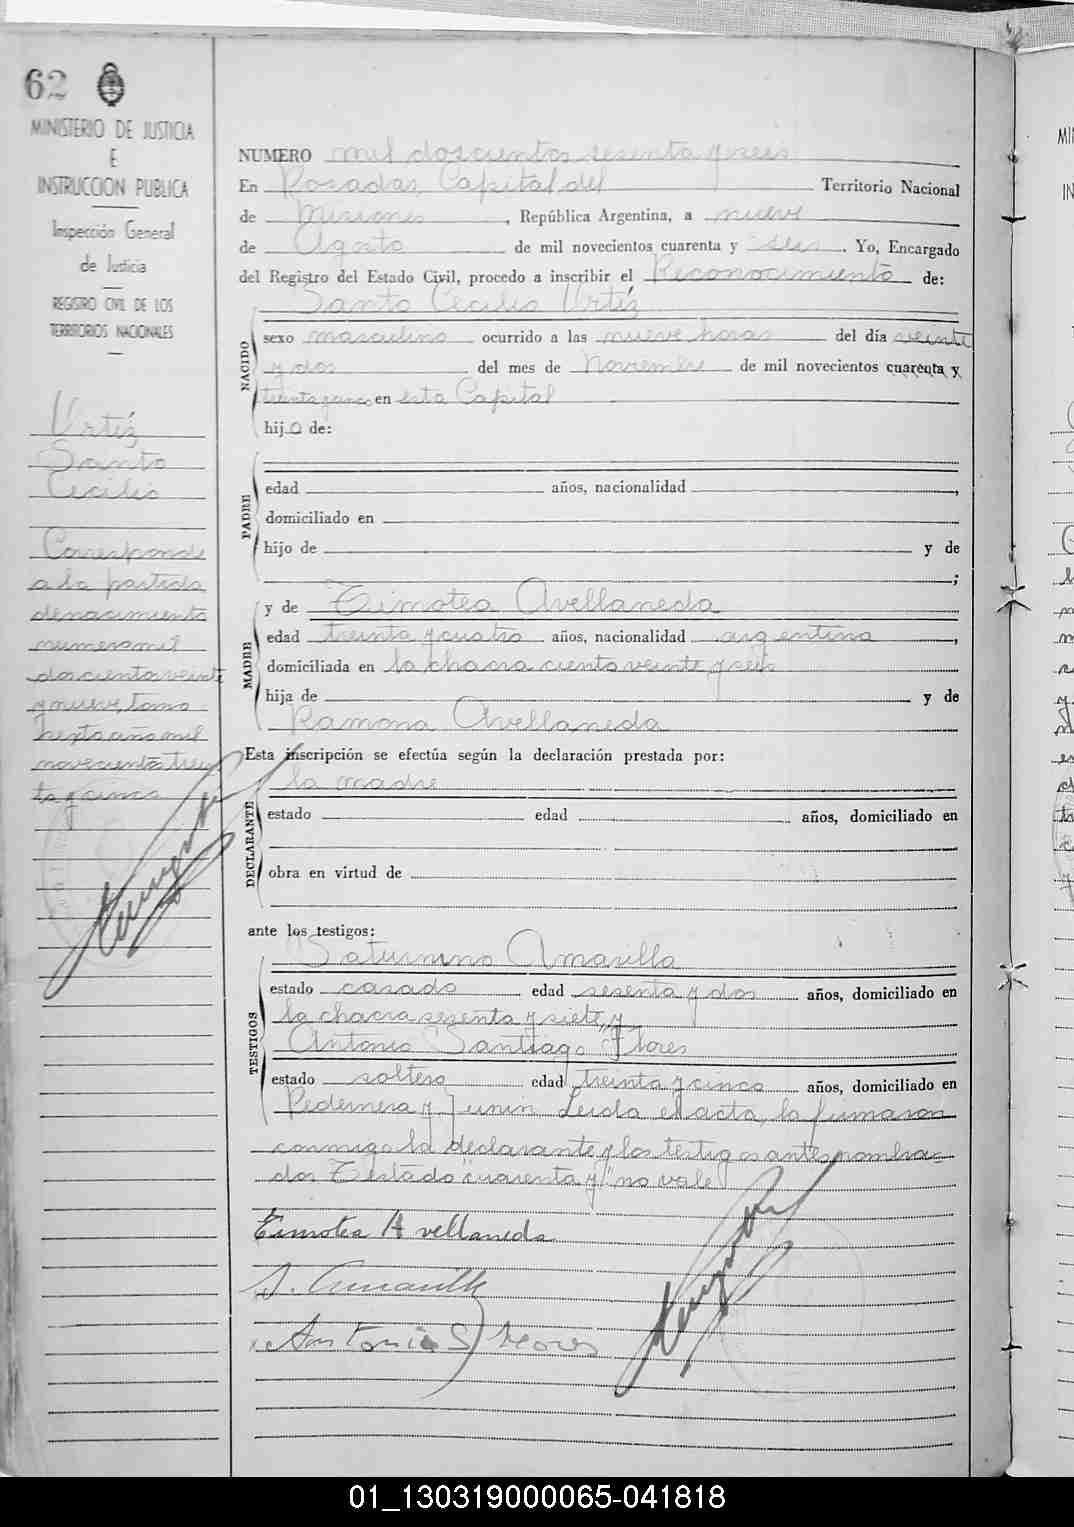 62
MINISTERIO DE JUSTICIA
E
INSTRUCCION PUBLICA
Inspección General
de Justicia
REGISTRO CIVIL DE LOS
TERRITORIOS NACIONALES
Urtíz
Santo
Cecilio
Corresponde
a la partida
de nacimiento
numero mil
doscienta veinte
y nueve, tomo
sexto año mil
novecientos trein
ta y cinco
NUMERO mil doscientos sesenta y seis
En Posadas, Capital del Territorio Nacional
de Misiones, República Argentina, a nueve
de Agosto de mil novecientos cuarenta y seis. Yo, Encargado
del Registro del Estado Civil, procedo a inscribir el Reconocimiento de:
Santo Cecilio Urtíz
NACIDO
sexo masculino ocurrido a las nueve horas del día veinte
y dos del mes de Noviembre de mil novecientos cuarenta y
treinta y cinco en esta Capital
hijo de:
PADRE
edad años, nacionalidad ,
domiciliado en
hijo de y de
;
MADRE
y de Timotea Avellaneda
edad treinta y cuatro años, nacionalidad argentina,
domiciliada en la chacra ciento veinte y seis
hija de y de
Ramona Avellaneda
Esta inscripción se efectúa según la declaración prestada por:
la madre
DECLARANTE
estado edad años, domiciliado en
obra en virtud de
ante los testigos:
TESTIGOS
Saturnino Amarilla
estado casado edad sesenta y dos años, domiciliado en
la chacra sesenta y siete, y
Antonio Santiago Flores
estado soltero edad treinta y cinco años, domiciliado en
Pedernera y Junin. Leida el acta, la firmaron
conmigo la declarante y los testigos antes nombra=
dos Testado "cuarenta y" no vale
Timotea Avellaneda
S. Amarilla
Antonio S. Flores
MIN
IN
01_130319000065-041818